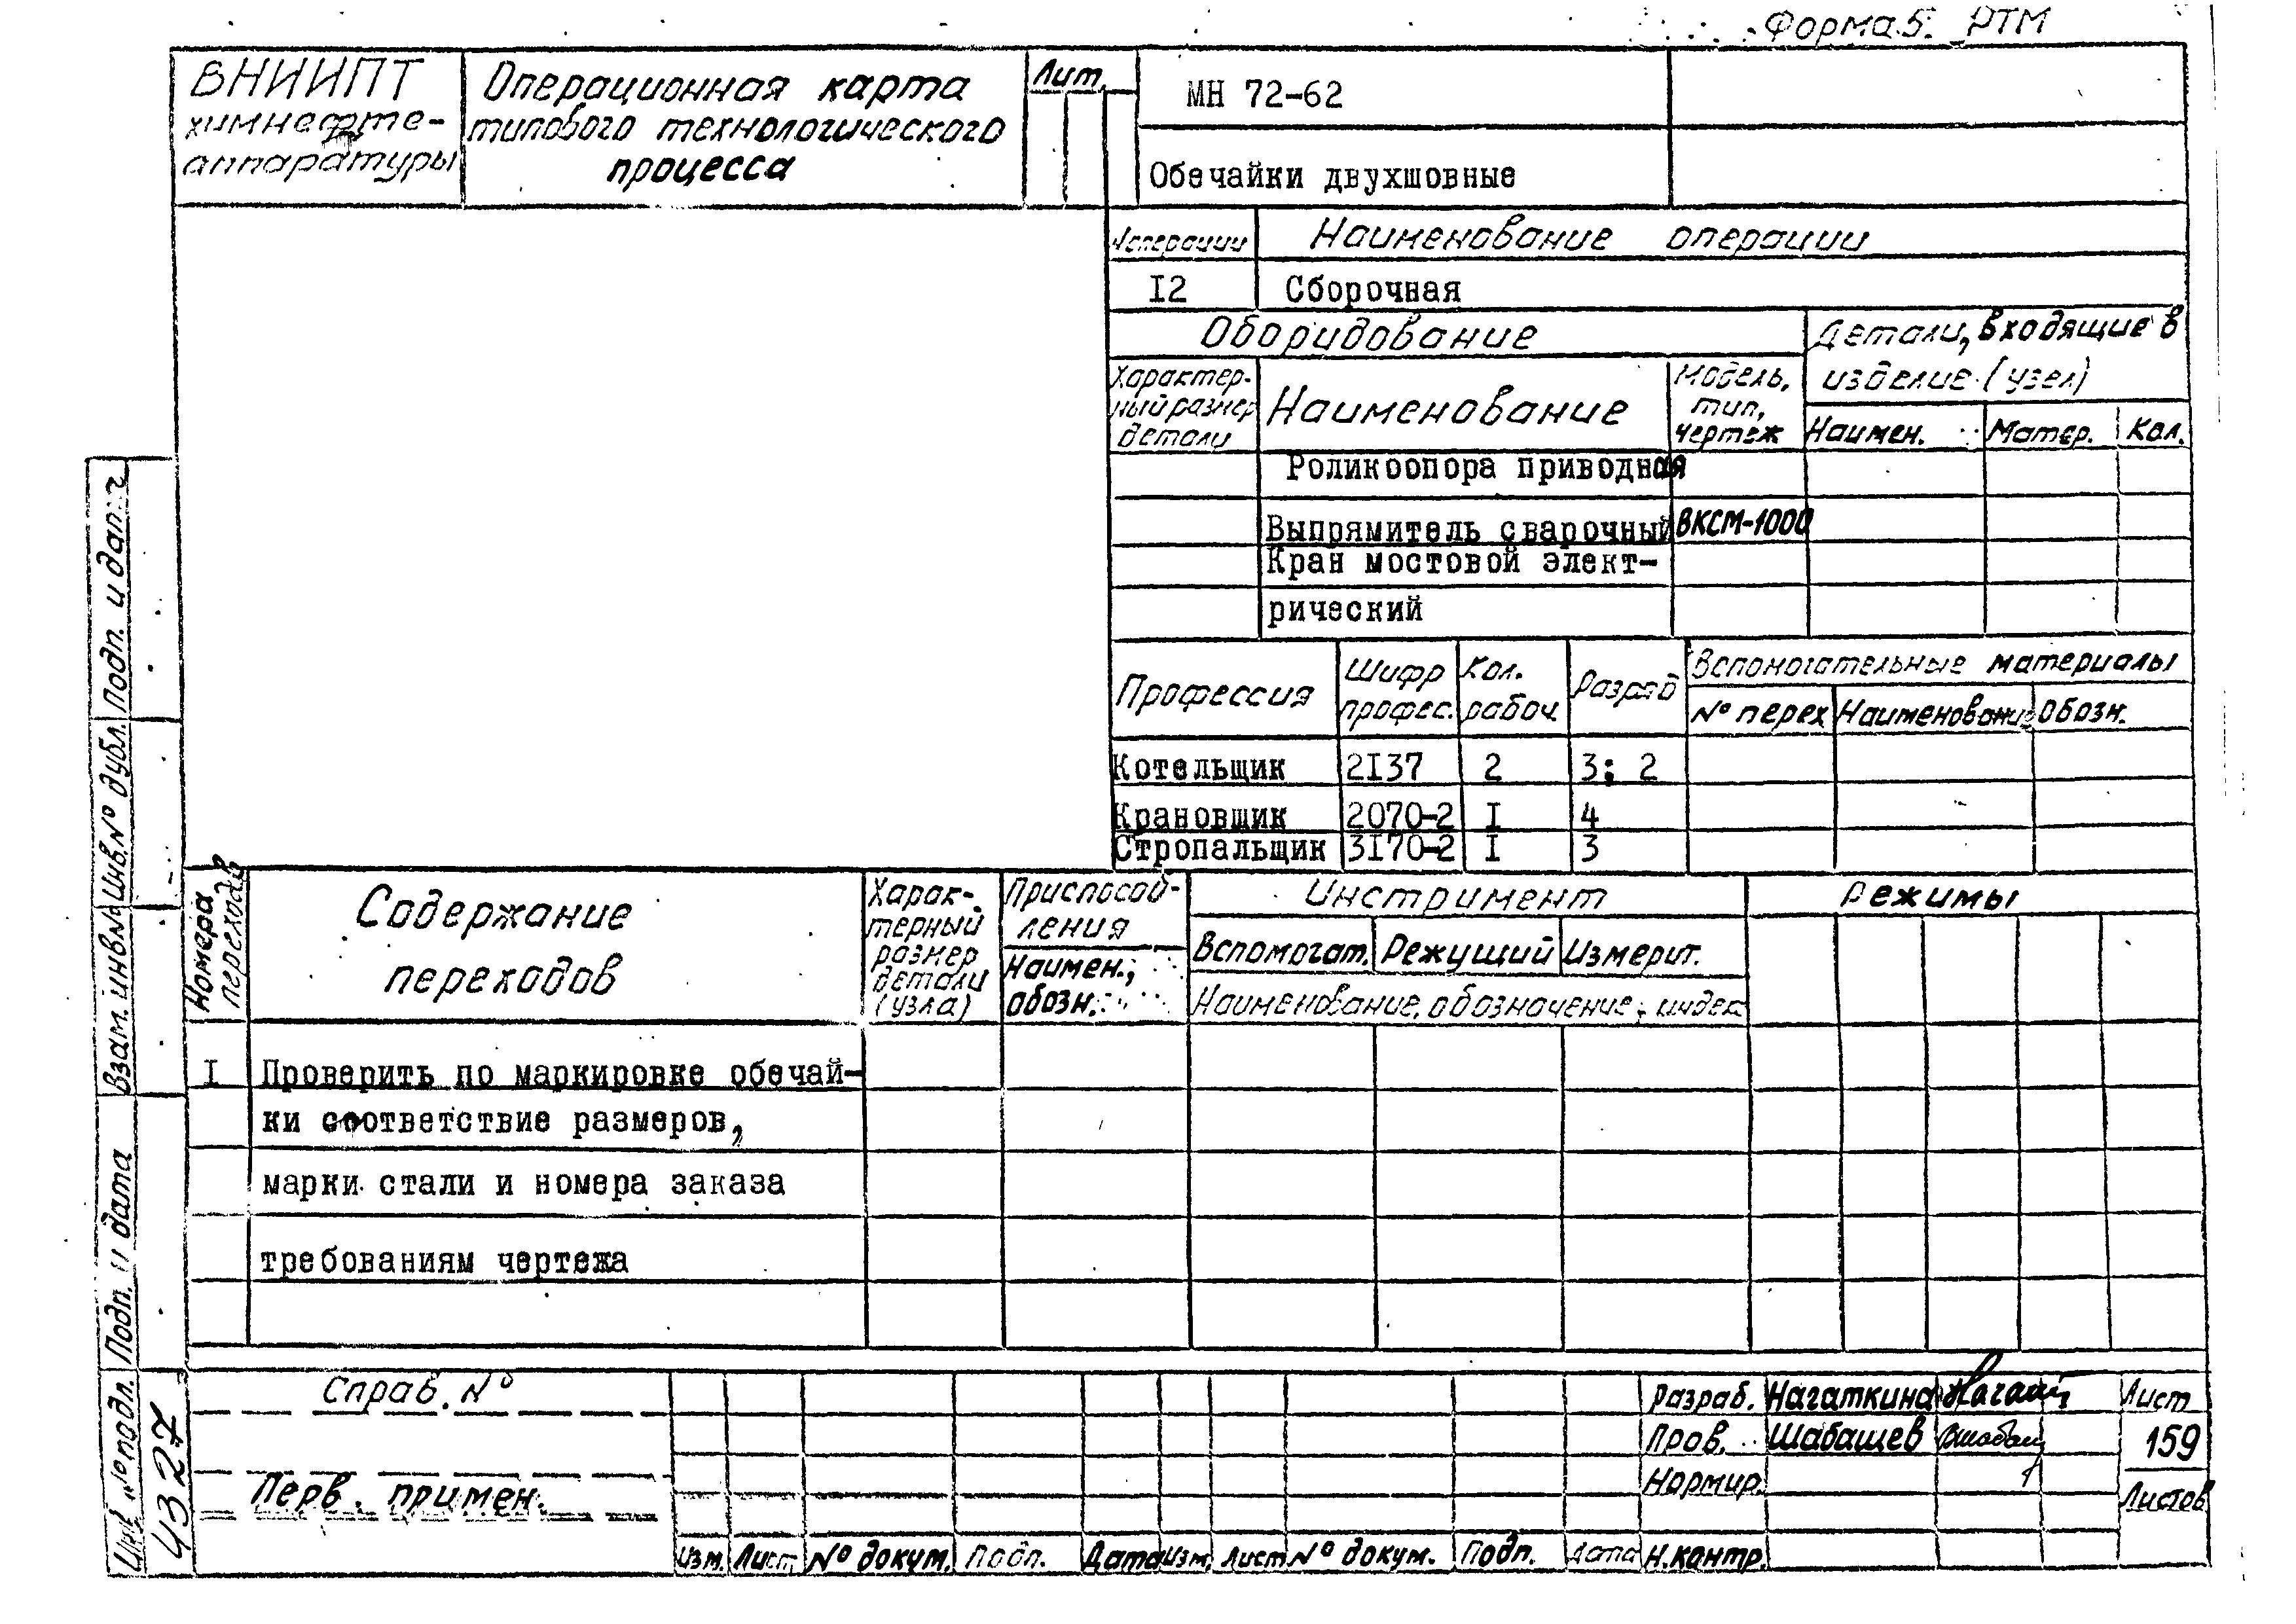 Форма 5. РТМ
ВНИИПТ
химнефте-
аппаратуры
Операционная карта
типового технологического
процесса
Лит.
МН 72-62
Обечайки двухшовные
№операции
Наименование операции
I2
Сборочная
Оборудование
Детали, входящие в
изделие (узел)
Характер-
ный размер
детали
Наименование
Модель,
тип,
чертеж
Наимен.
Матер.
Кол.
Роликоопора приводная
Выпрямитель сварочный ВКСМ-1000
Кран мостовой элект-
рический
Профессия
Шифр
профес.
Кол.
рабоч.
Разряд
Вспомогательные материалы
№ перех
Наименование
Обозн.
Котельщик 2I37 2 3; 2
Крановщик 2070-2 I 4
Стропальщик 3I70-2 I 3
Номера
переходов
Содержание
переходов
Харак-
терный
размер
детали
(узла)
Приспособ-
ления
Наимен.,
обозн.
Инструмент
Вспомогат. Режущий Измерит.
Наименование, обозначение, индекс
Режимы
I Проверить по маркировке обечай-
ки соответствие размеров,
марки стали и номера заказа
требованиям чертежа
Подп. и дата
Инв.№ дубл.
Взам. инв.№
Подп. и дата
Инв. № подл.
4327
Справ. №
Перв. примен.
Изм. Лист № докум. Подп. Дата Изм. Лист № докум. Подп. Дата
Разраб. Нагаткина
Пров. Шабашев
Нормир.
Н.контр.
Лист
159
Листов